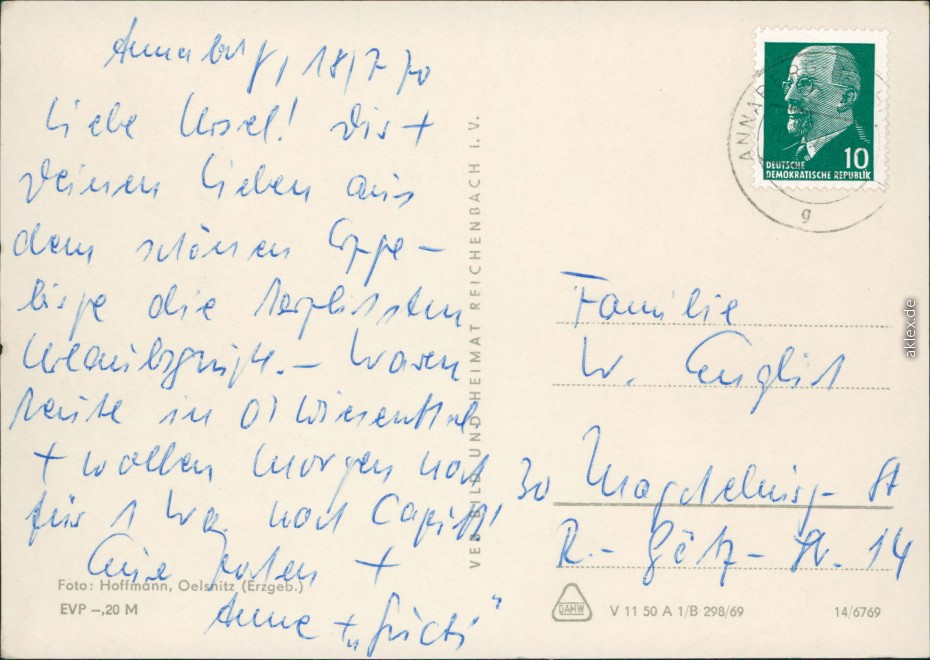 Annaberg, 18.7.70
Liebe Ursel! Dir +
Deinen Lieben aus
dem schönen Erzge-
birge die herzlichsten
Urlaubsgrüße. – Waren
heute in O'Wiesenthal
+ wollen morgen noch
für 1 Wo. nach
Eure +
Anne + "
Foto: Hoffmann, Oelsnitz (Erzgeb.)
EVP –,20 M
VEB BILD UND HEIMAT REICHENBACH i. V.
ANNABERG
g
10
DEUTSCHE
DEMOKRATISCHE REPUBLIK
Familie
W. Englist
30 Magdeburg- St
R.- Götz- Str. 14
DAHW
V 11 50 A 1/B 298/69
14/6769
aklex.de